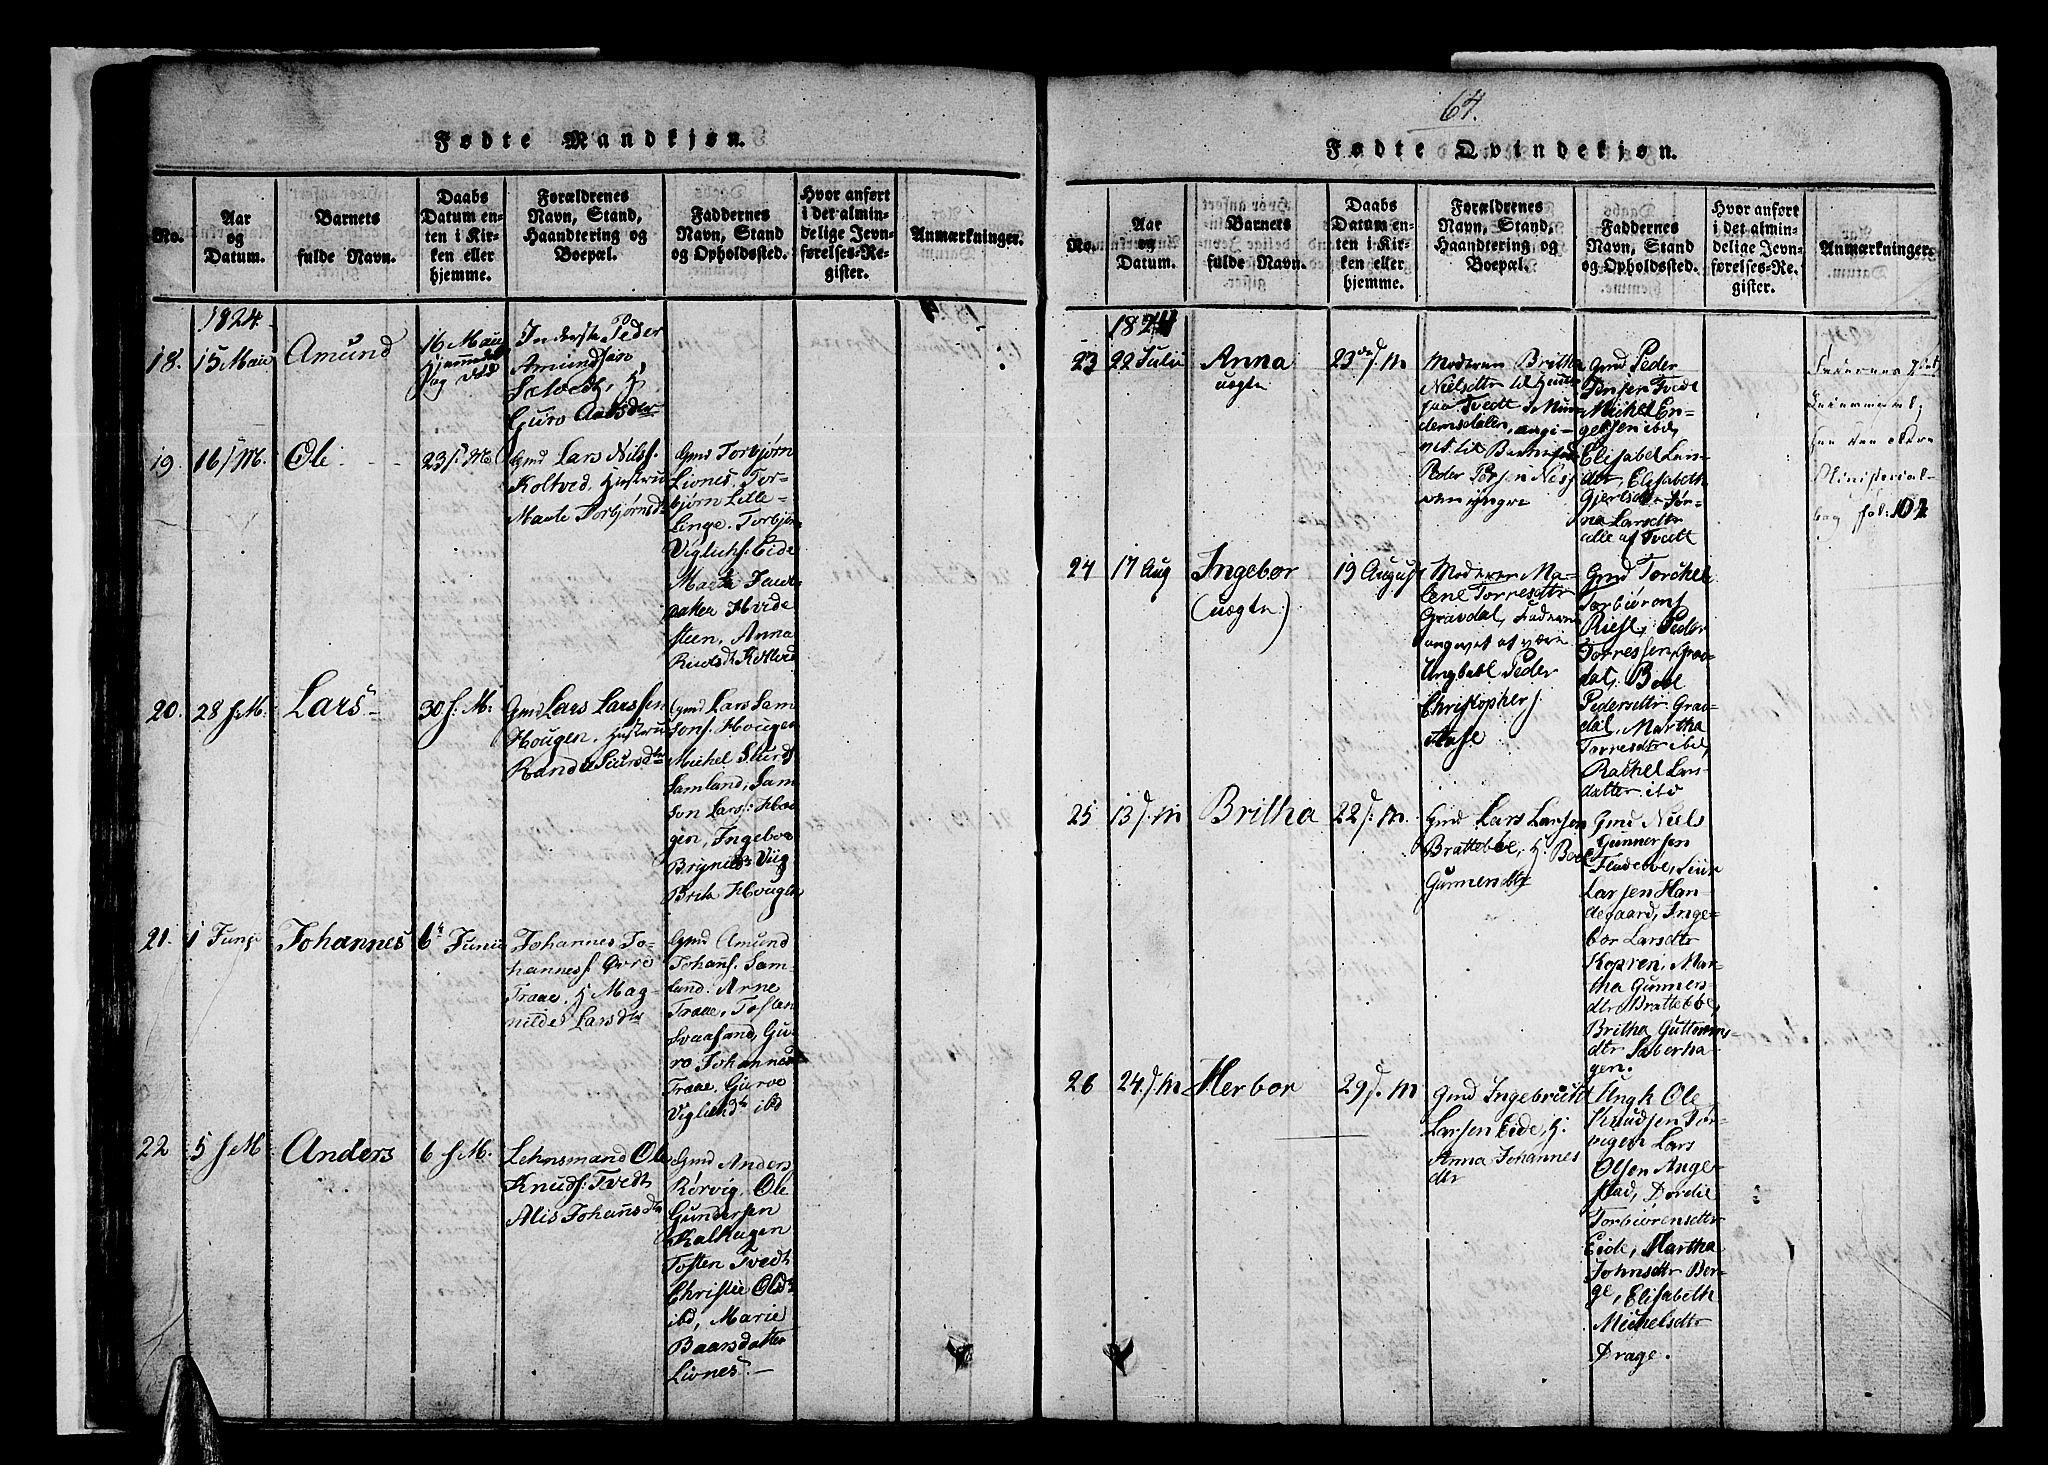 Fødte Mandkjøn.
No.
Aar
og
Datum.
Barnets
fulde Navn.
Daabs
Datum en-
ten i Kir-
ken eller
hjemme.
Forældrenes
Navn, Stand,
Haandtering og
Boepæl.
Faddernes
Navn, Stand
og Opholdssted.
Hvor anført
i det almin-
delige Jevn-
førelses-Re-
gister.
Anmærkninger.
1824.
18. 15 Maii
Amund
16 Maii
Hjemmedøbt
og død
Inderste Peder
Amundsøn
Guro
19. 16 f M.
Ole
23 f. M
Gmd Lars Nilss.
Koltved, Hustru
Marte Torbjørnsdr
Gmd Torbjørn
Livnes, Tor-
bjørn Lille-
Enge, Torbjørn
Viglichs. Eide
Marte
Hvide
steen, Anna
20. 28 f M.
Lars
30 f. M.
Gmd Lars Larssen
Hougen, Hustru
Randi Siursdtr
Gmd Lars Sam
sons. Hougen
Michel Siurds
Samland, Sam
son Lars. Hou
gen, Ingebor
Brynilds Viig
Brita Hougen
21. 1 Junii
Johannes
6te Junii
Johannes Jo-
hanness. Øvre
Traae, H Mag-
nilde Larsdtr
Gmd Amund
Johans. Sam-
land. Arne
Traae, Tosten
Svaasand, Gu-
ro Johannesd
Traae, Gurve
Viglichdtr ibd
22 5 f M
Anders
6 f M.
Lehnsmand Ole
Knuds. Tvedt
Alis Johansdtr
Gmd Anders
Rørvig, Ole
Gundersen
Kalhagen
Tosten Tvedt
Christie Olsdtr
ibd, Marie
Baarsdatter
Livnes. —
64.
Fødte Qvindekjøn.
No.
Aar
og
Datum.
Barnets
fulde Navn.
Daabs
Datum en-
ten i Kir-
ken eller
hjemme.
Forældrenes
Navn, Stand,
Haandtering og
Boepæl.
Faddernes
Navn, Stand
og Opholdssted.
Hvor anført
i det almin-
delige Jevn-
førelses-Re-
gister.
Anmærkninger.
1824
23 22 Julii
Anna
uægte
23 d. M
Moderen Britha
Nielsdtr til Huus
paa Tvedt i Mun-
demsdalen, angi-
vet til Barnefader
Peder
Gmd Peder
Tvedt
Michel En-
gelsen ibd,
Elisabet Lars-
dtr, Elisabeth
Larsdtr
alle af Tvedt
den ældre
Ministerial-
bog fol: 104
24 17 Aug
Ingebor
(uægte)
19 August
Moderen Ma-
lene Torresdtr
Gravdal, Faderen
angivet at være
Ungkarl Peder
Christophers
Aase
Gmd Torchel
Torbiørns
Peder
Torresen Grav-
dal, Boel
Pedersdtr Grav-
dal, Martha
Torresdtr ibd,
Rachel Lars-
datter ibd
25 13 d. M
Britha
22 d. M.
Gmd Lars Larsen
Brattebøe, H. Boel
Gunnersdtr
Gmd Niels
Gunnersen
Fladebøe, Siur
Larsen Han-
degaard, Inge-
bor Larsdtr
Kopren, Mar-
tha Gunners-
dtr Brattebøe,
Britha Guttorms-
dtr Saberha-
gen.
26 24 d. M
Herbor
29 d. M
Gmd Ingebrigt
Larsen Eide, H.
Anna Johannes
dtr
Ungk Ole
Knudsen Tør-
vigen Lars
Olsen Ange-
stad, Dordie
Torbiørensdtr
Eide, Martha
Johnsdtr Ber-
ge, Elisabeth
Michelsdtr
Drage.